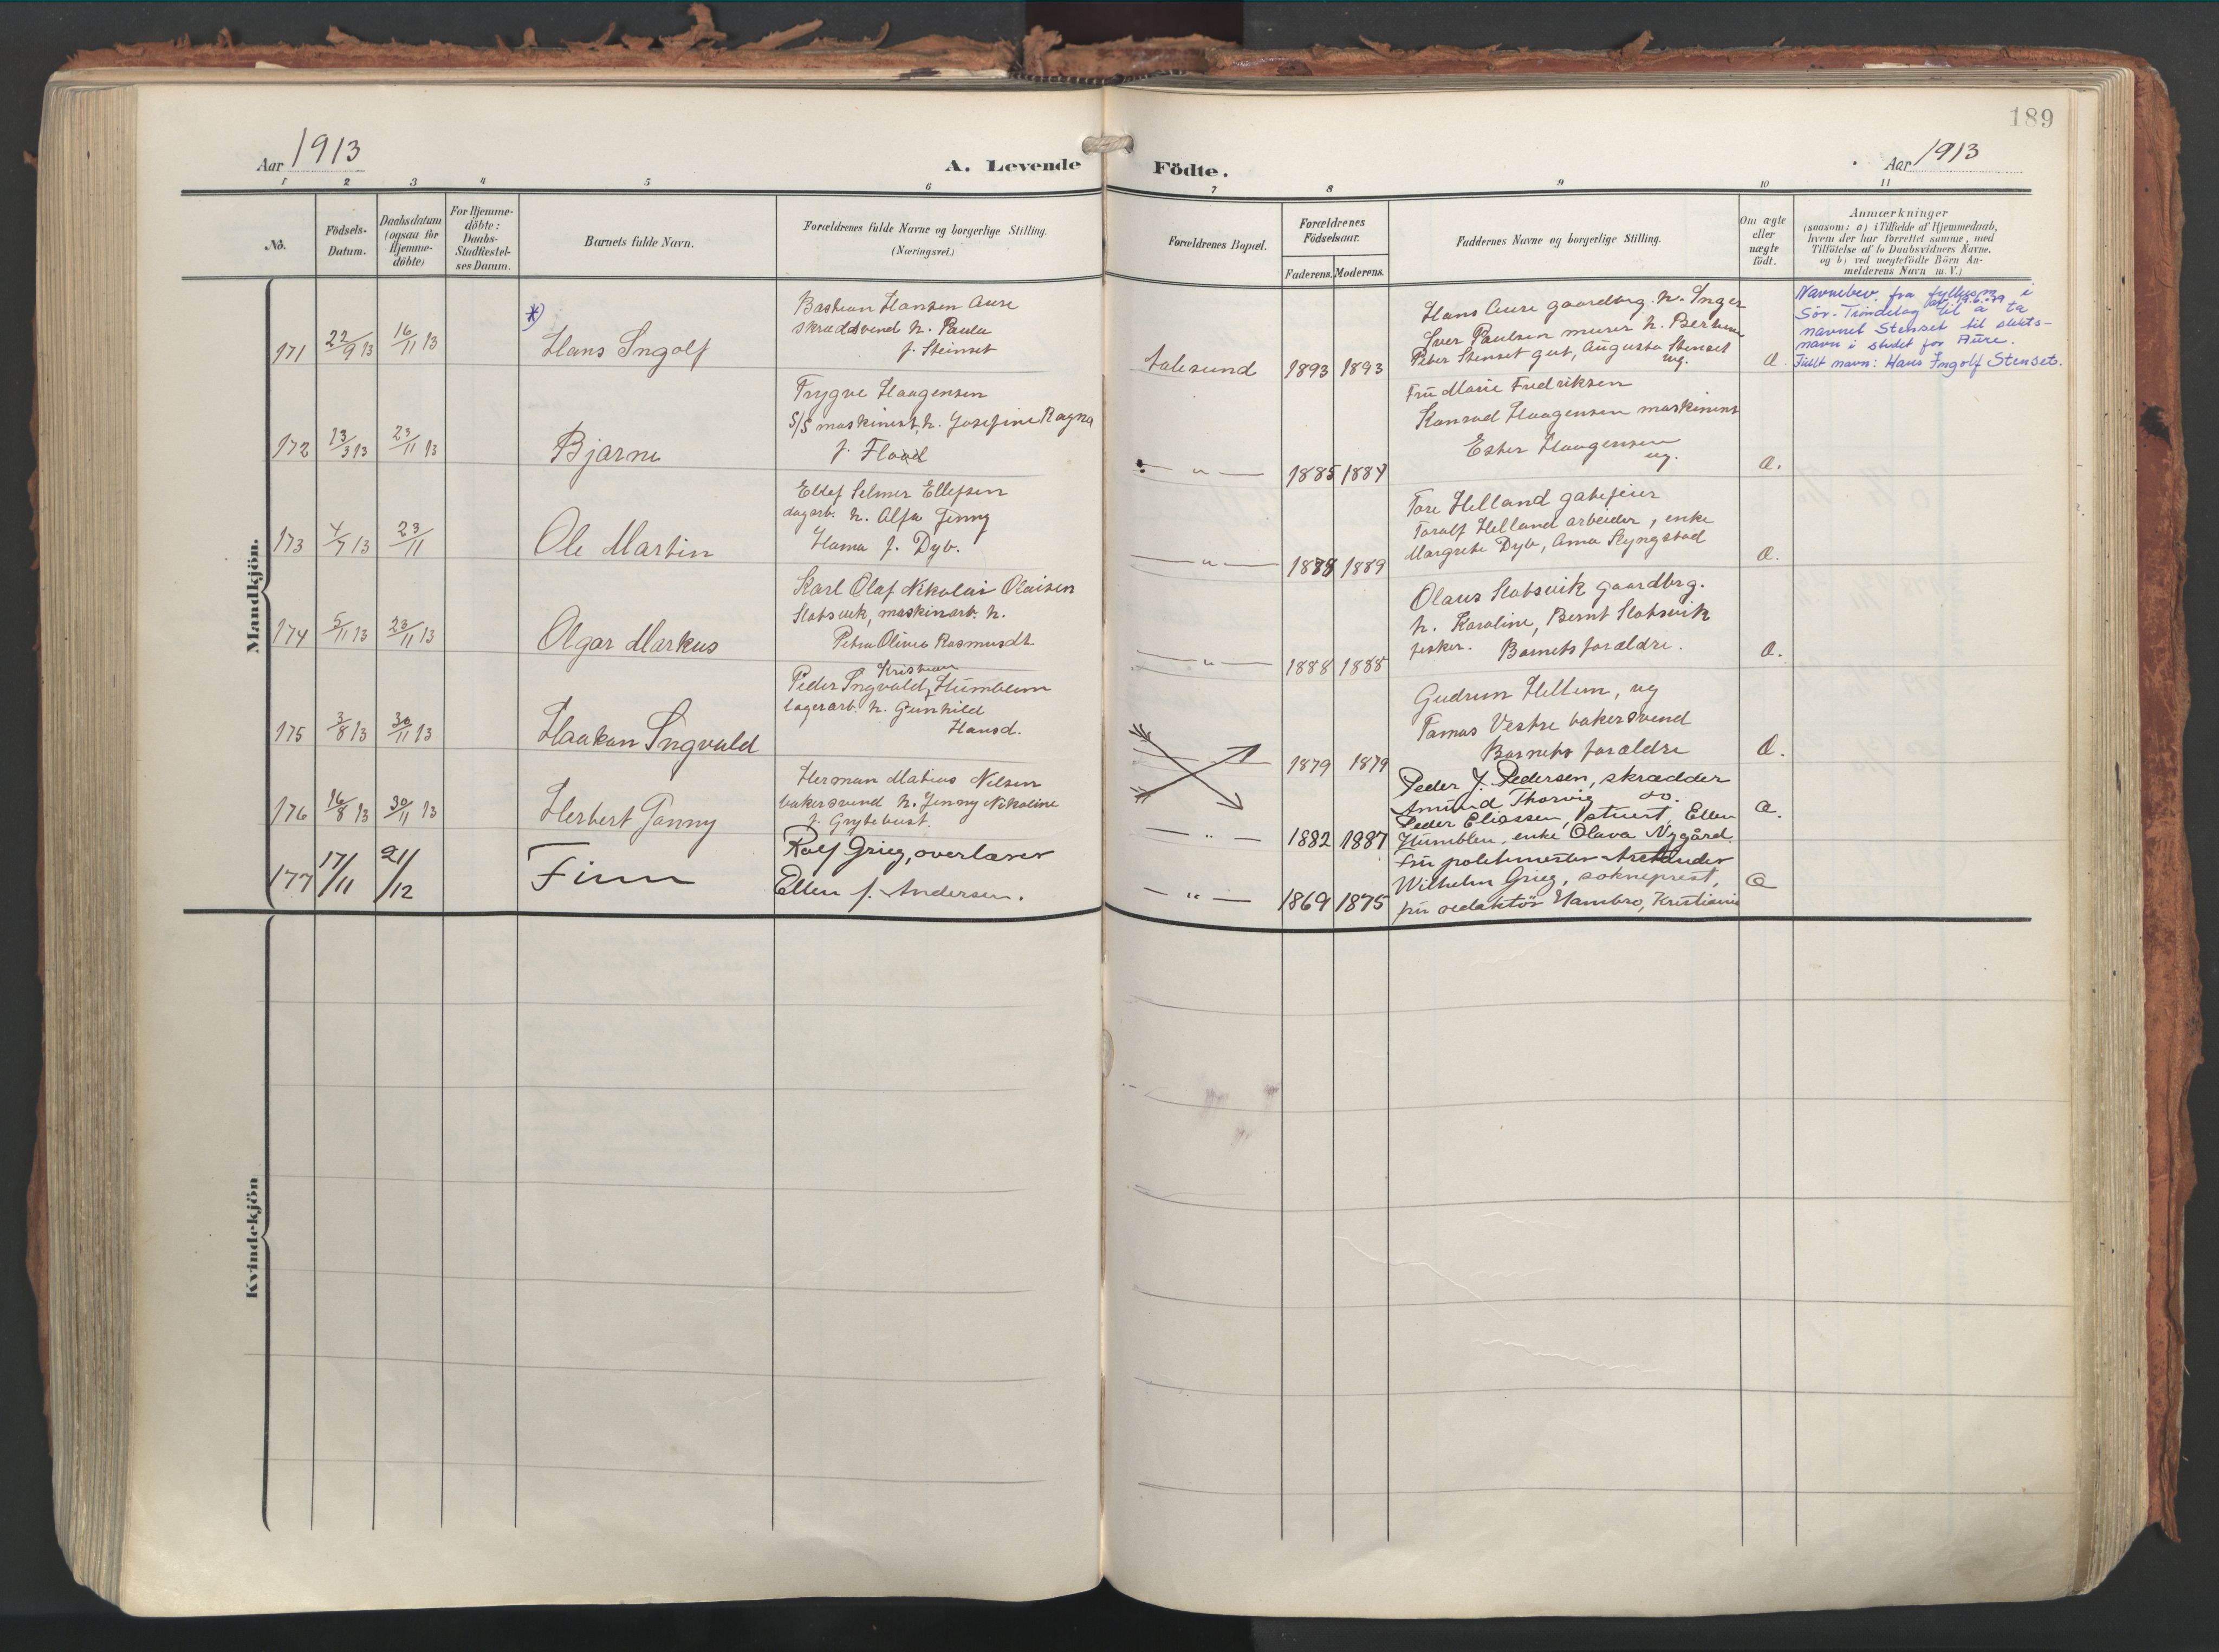 189
Aar 1913
A. Levende Födte.
Aar 1913
1 2 3 4 5 6 7 8 9 10 11
No.
Födsels-Datum.
Daabsdatum (ogsaa for Hjemme-döbte)
For Hjemme-döbte: Daabs-Stadfæstel-ses Datum.
Barnets fulde Navn.
Forældrenes fulde Navne og borgerlige Stilling.
(Næringsvei.)
Forældrenes Bopæl.
Forældrenes Födselsaar.
Faderens. Moderens.
Faddernes Navne og borgerlige Stilling.
Om ægte eller uægte födt.
Anmærkninger
(saasom: a) i Tilfælde af Hjemmedaab,
hvem der har forrettet samme, med
Tilföielse af to Daabsvidners Navne,
og b) ved uægtefödte Börn An-
melderens Navn m. V.)
Mandkjön.
171 22/9 13 16/11 13
*)
Hans Ingolf
Bastian Hansen Aure
skræddsvend h. Paula
f. Steinset
Aalesund
1893 1893
Hans Aure gaardbrg. h. Inger
Iver Paulsen murer h.
Peter Stenset gut, Augusta Stenset
ug.
Æ.
Navnebev. fra fylkesm. i
Sör-Tröndelag til å ta
navnet Stenset til slekts-
navn i stedet for Aure.
Fullt navn: Hans Ingolf Stenset.
172 23/3 13 23/11 13
Bjarne
Trygve Haagensen
S/S maskinist, h. Josefine Ragna
f. Flood
— " —
1885 1884
Fru Marie Fredriksen
Konrad Haagensen maskinist
Ester Haagensen
ug.
Æ.
173 4/7 13 23/11
Ole Martin
Ellef Selmer Ellefsen
dagarb. h. Alfa Jenny
Hama f. Dyb.
— " —
1888 1889
Tore Helland gatefeier
Toralf Helland arbeider, enke
Margrete Dyb, Anna Slyngstad
Æ.
174 5/11 13 23/11 13
Olgar Markus
Karl Olaf Nikolai Olaisen
Slotsvik, maskinarb. h.
Petra Olivia Rasmusdt.
— " —
1888 1888
Olaus Slotsvik gaardbrg.
h. Karoline, Bernt Slotsvik
fisker. Barnets forældre.
Æ.
175 3/8 13 30/11 13
Haakon Ingvald
Kristian
Peder Ingvald Humblem
lagerarb. h. Gunhild
Hansd.
1879 1879
Gudrun Hellem, ug
Tomas Vestre bakersvend
Barnets forældre
Æ.
176 16/8 13 30/11 13
Herbert Jonny
Herman Matias Nilsen
bakersvend h. Jenny Nikoline
f. Grytebust.
— " —
1882 1887
Peder J. Pedersen, skrædder
Amund Thorvig do.
Peder Eliassen, stuert, Ellen
Humblen, enke Olava Nygård.
Æ.
177 17/11 21/12
Finn
Rolf Grieg, overlærer
Ellen f. Andersen.
— " —
1869 1875
Fru politimester Arctander
Wilhelm Grieg, sokneprest,
fru redaktör Hambro, Kristiania
Æ
Kvindekjön